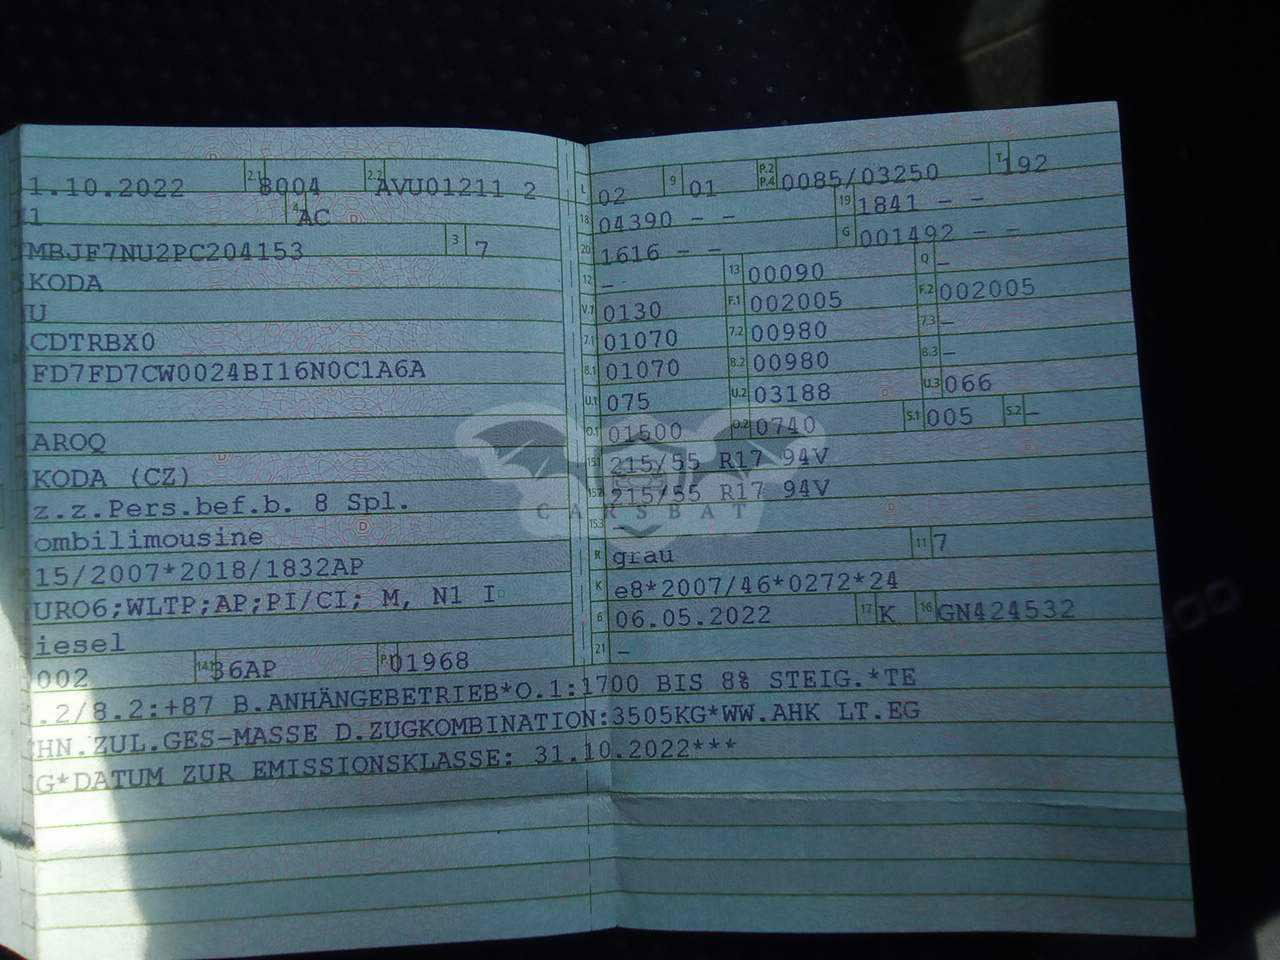 1.10.2022 2.1 8004 2.2 AVU01211 2
11 4 AC
MBJF7NU2PC204153 3 7
KODA
U
CDTRBX0
FD7FD7CW0024BI16N0C1A6A
AROQ
KODA (CZ)
z.z.Pers.bef.b. 8 Spl.
ombilimousine
15/2007*2018/1832AP
URO6;WLTP;AP;PI/CI; M, N1 I
iesel
002 14.1 36AP P.1 01968
L 02 9 01 P.2 P.4 0085/03250 T 192
18 04390 - - 19 1841 - -
20 1616 - - G 001492 - -
12 - 13 00090 Q -
V.7 0130 F.1 002005 F.2 002005
7.1 01070 7.2 00980 7.3 -
8.1 01070 8.2 00980 8.3 -
U.1 075 U.2 03188 U.3 066
O.1 01500 O.2 0740 S.1 005 S.2 -
15.1 215/55 R17 94V
15.2 215/55 R17 94V
CARSBAT
15.3 -
R grau 11 7
K e8*2007/46*0272*24
6 06.05.2022 17 K 16 GN424532
21 -
.2/8.2:+87 B.ANHÄNGEBETRIEB*O.1:1700 BIS 8% STEIG.*TE
HN.ZUL.GES-MASSE D.ZUGKOMBINATION:3505KG*WW.AHK LT.EG
G*DATUM ZUR EMISSIONSKLASSE: 31.10.2022***